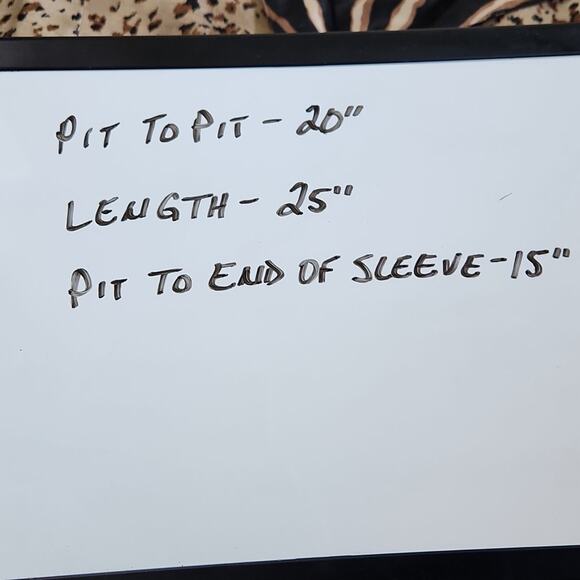 PIT TO PIT - 20"
LENGTH - 25"
PIT TO END OF SLEEVE - 15"